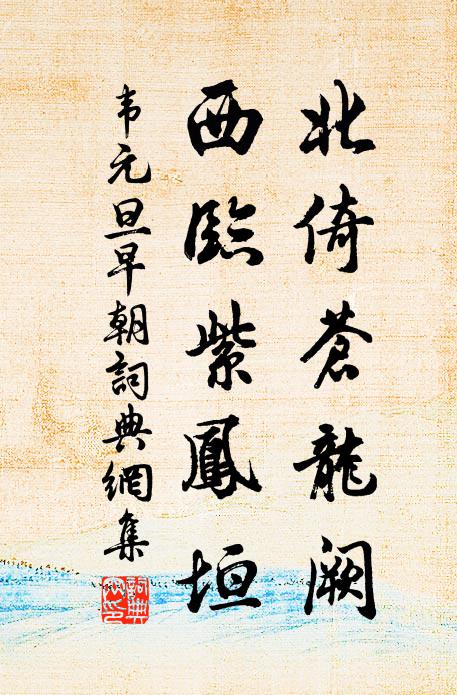 北倚蒼龍闕
西臨紫鳳垣
韦元旦早朝詞典網集